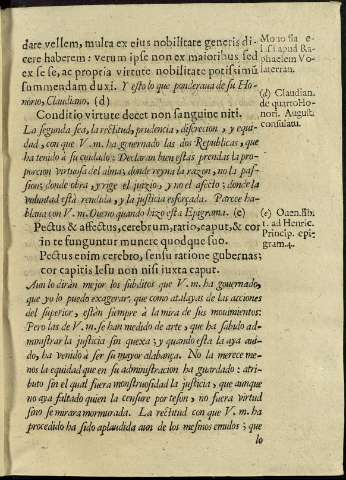 dare vellem, multa ex eius nobilitate generis di-
cere haberem: verum ipse non ex maioribus sed
ex se se, ac propria virtute nobilitate potissimũ
summendam duxi. Y esto lo que ponderaua de su Ho-
norio, Claudiano. (d)
Conditio virtute decet non sanguine niti.
La segunda sea, la rectitud, prudencia, discrecion, y equi-
dad, con que V. m. ha gouernado las dos Republicas, que
ha tenido à su cuidado: Declaran bien estas prendas la pro-
porcion virtuosa del alma, donde reyna la razon, no la pas-
sion; donde obra, y rige el juyzio, y no el afecto; donde la
voluntad està rendida, y la justicia esforçada. Parece ha-
blaua con V. m. Oueno quando hizo esta Epigrama. (e)
Pectus & affectus, cerebrum, ratio, caput, & cor
in te funguntur munere quodque suo.
Pectus enim cerebro, sensu ratione gubernas;
cor capitis Iesu non nisi iuxta caput.
Aun lo diràn mejor los subditos que V. m. ha gouernado,
que yo lo puedo exagerar, que como atalayas de las acciones
del superior, estàn siempre à la mira de sus mouimientos:
Pero las de V. m. se han medido de arte, que ha sabido ad-
ministrar la justicia sin quexa; y quando esta la aya aui-
do, ha venido à ser su mayor alabança. No la merece me-
nos la equidad que en su administracion ha guardado: atri-
buto sin el qual fuera monstruosidad la justicia, que aunque
no aya faltado quien la censure por teson, no fuera virtud
sino se mirara mormurada. La rectitud con que V. m. ha
procedido ha sido aplaudida aun de los mesmos emulos; que
lo
lis i apud Ra-
phaelem Vo-
laterran.
(d) Claudian.
de quarto Ho-
nori. August.
consulatu.
(e) Oaen. lib.
1. ad Henric.
Princip. epi-
gram. 4.